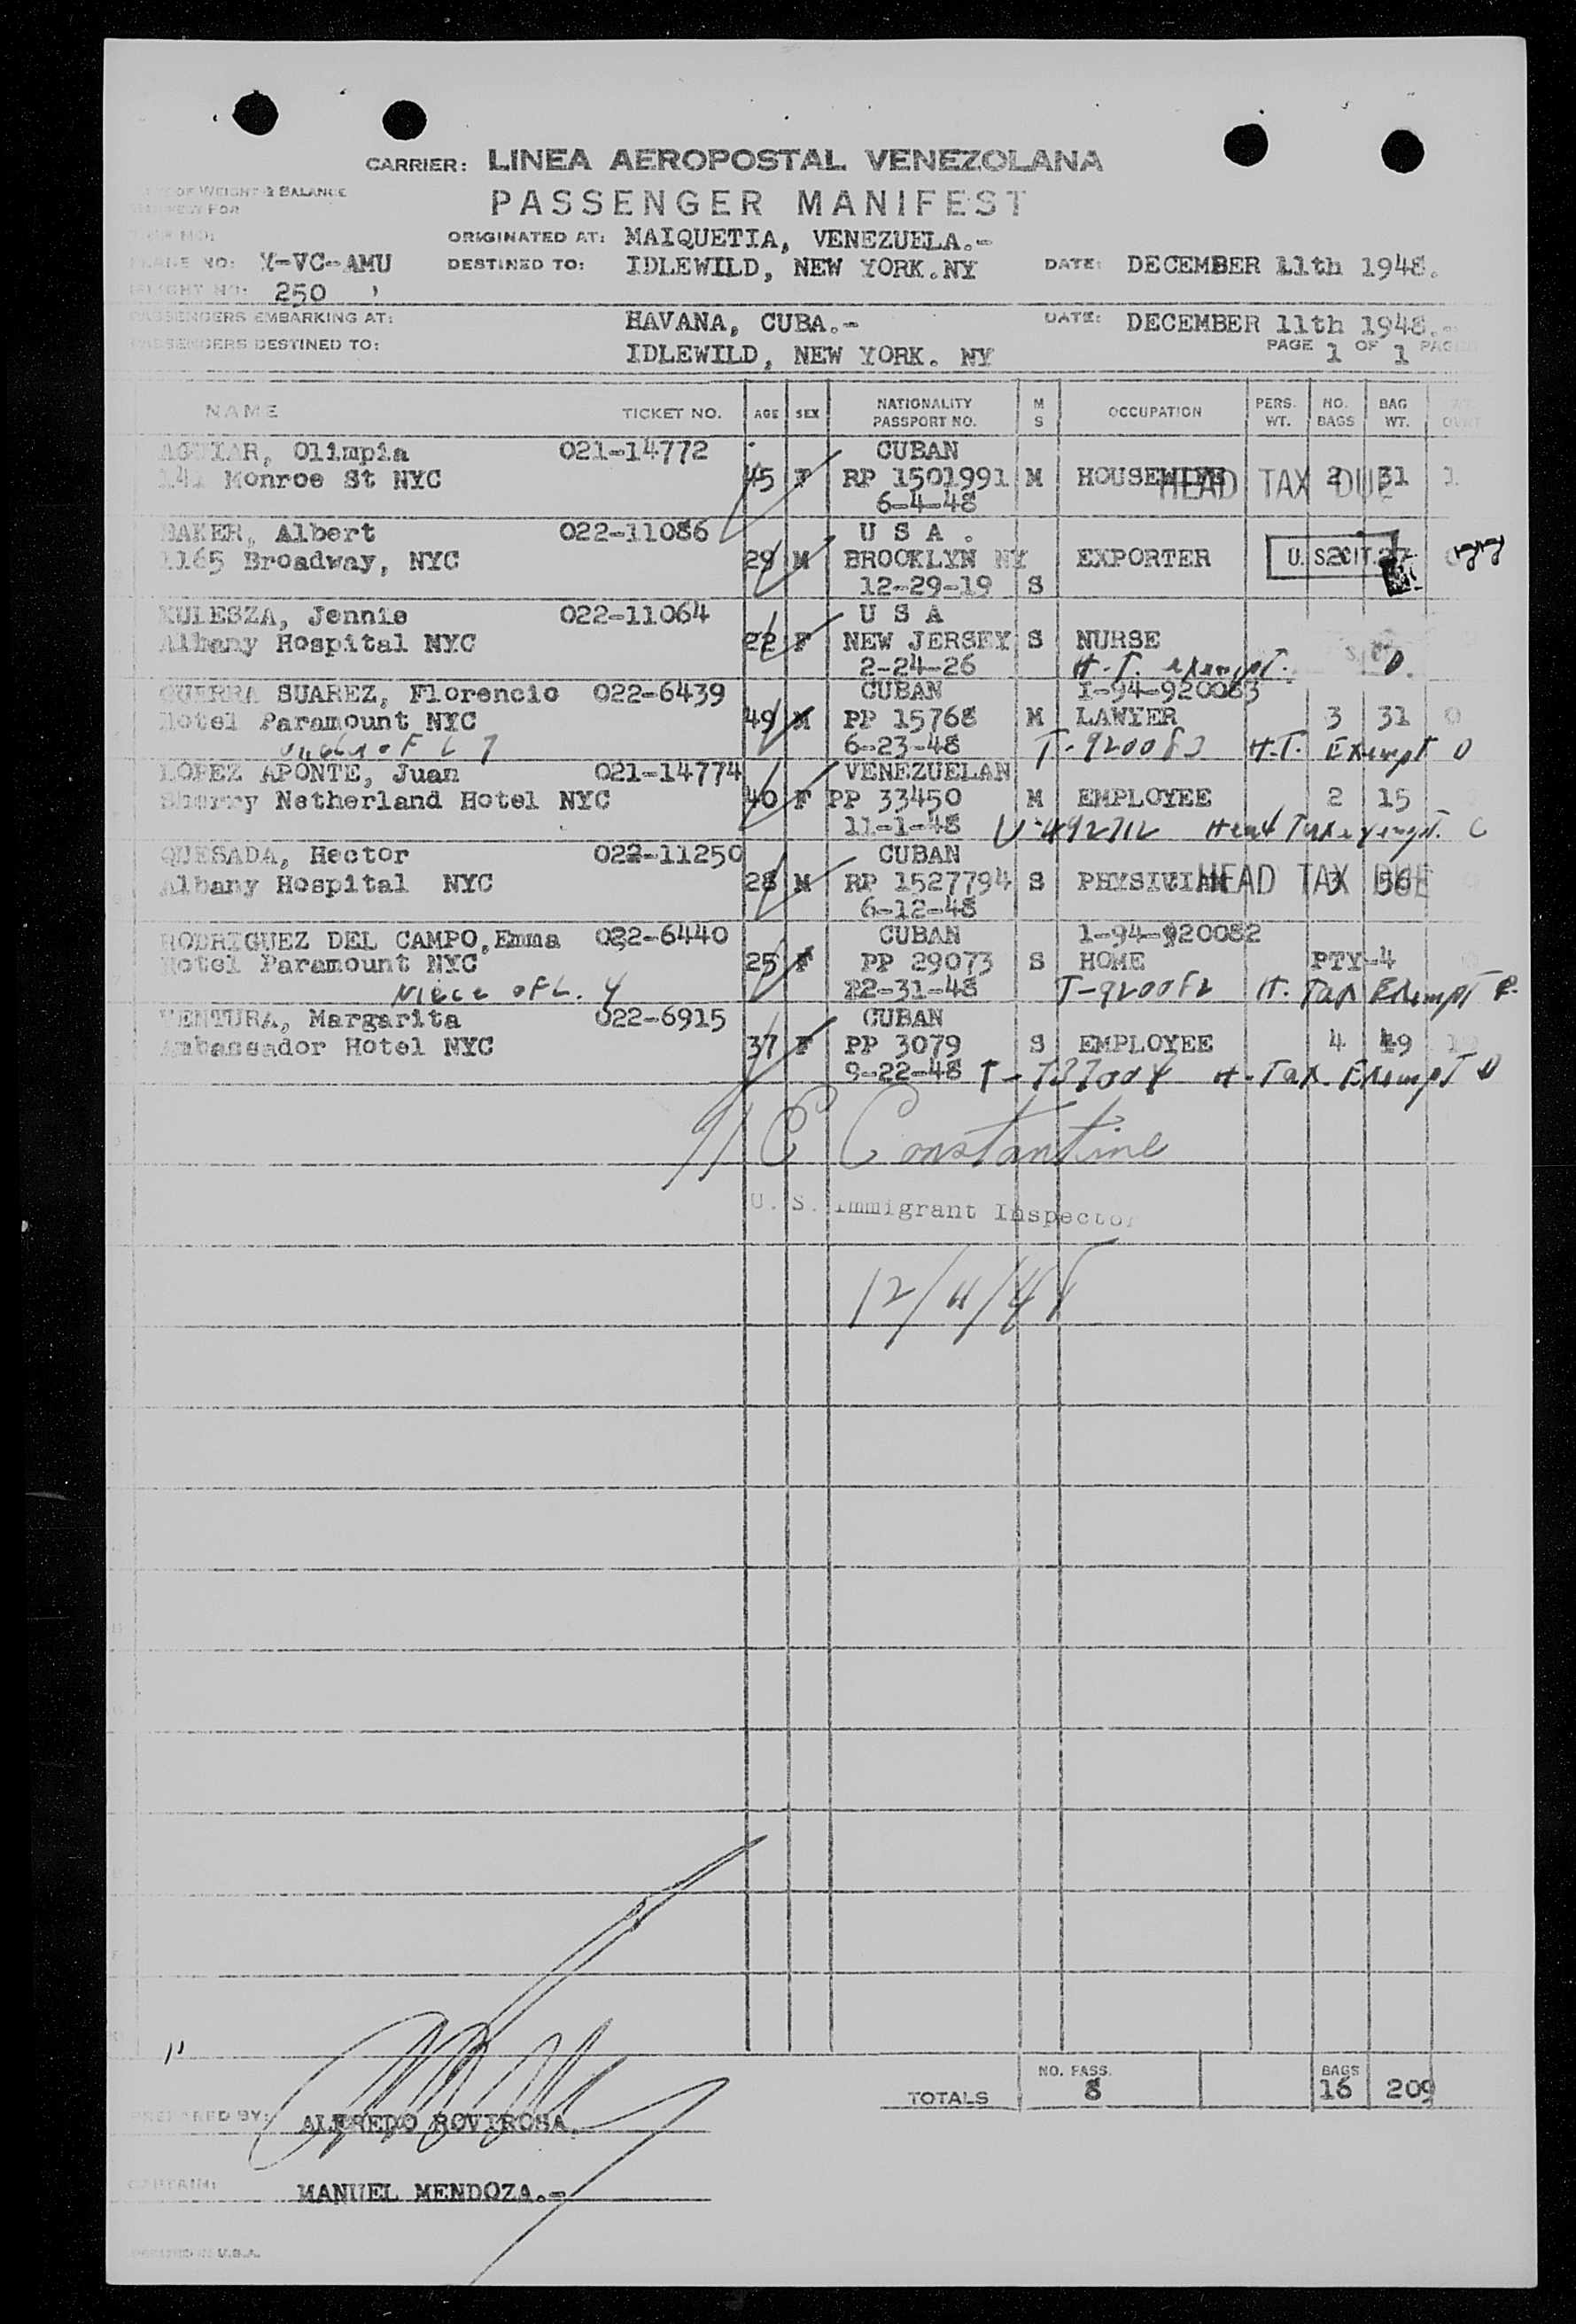 CARRIER: LINEA AEROPOSTAL VENEZOLANA
WEIGHT & BALANCE
FOR
PASSENGER MANIFEST
ORIGINATED AT: MAIQUETIA, VENEZUELA.-
PLANE NO: Y-VC-AMU DESTINED TO: IDLEWILD, NEW YORK.NY DATE: DECEMBER 11th 1948.
FLIGHT NO: 250
PASSENGERS EMBARKING AT: HAVANA, CUBA.- DATE: DECEMBER 11th 1948.-
PASSENGERS DESTINED TO: IDLEWILD, NEW YORK. NY PAGE 1 OF 1 PAGES
NAME TICKET NO. AGE SEX NATIONALITY PASSPORT NO. M S OCCUPATION PERS. WT. NO. BAGS BAG WT.
AGUIAR, Olimpia 021-14772 CUBAN
141 Monroe St NYC 45 F RP 1501991 M HOUSEWIFE HEAD TAX DUE 2 31 1
6-4-48
BAKER, Albert 022-11086 U S A .
1165 Broadway, NYC 29 M BROOKLYN NY EXPORTER U. S. CIT. 2 27
12-29-19 S
KULESZA, Jennie 022-11064 U S A
Albany Hospital NYC 22 F NEW JERSEY S NURSE
2-24-26 H.T. exempt.
GUERRA SUAREZ, Florencio 022-6439 CUBAN I-94-920083
Hotel Paramount NYC 49 M PP 15768 M LAWYER 3 31 0
Uncle of L 7 6-23-48 T-920083 H.T. Exempt
LOPEZ APONTE, Juan 021-14774 VENEZUELAN
Sherry Netherland Hotel NYC 40 F PP 33450 M EMPLOYEE 2 15
11-1-48 V-492712 Head Tax exempt.
QUESADA, Hector 022-11250 CUBAN
Albany Hospital NYC 28 M RP 1527794 S PHYSICIAN HEAD TAX DUE 3 56
6-12-48
RODRIGUEZ DEL CAMPO, Emma 022-6440 CUBAN 1-94-920082
Hotel Paramount NYC 25 F PP 29073 S HOME PTY-4
Niece of L. 4 12-31-48 T-920082 H. Tax Exempt
VENTURA, Margarita 022-6915 CUBAN
Ambassador Hotel NYC 37 F PP 3079 S EMPLOYEE 4 49
9-22-48 T-737004 H. Tax. Exempt
Constantine
U. S. Immigrant Inspector
12/11/48
TOTALS NO. PASS. 8 BAGS 16 209
PREPARED BY: ALFREDO ROVIROSA.
CAPTAIN: MANUEL MENDOZA.-
PRINTED IN U.S.A.